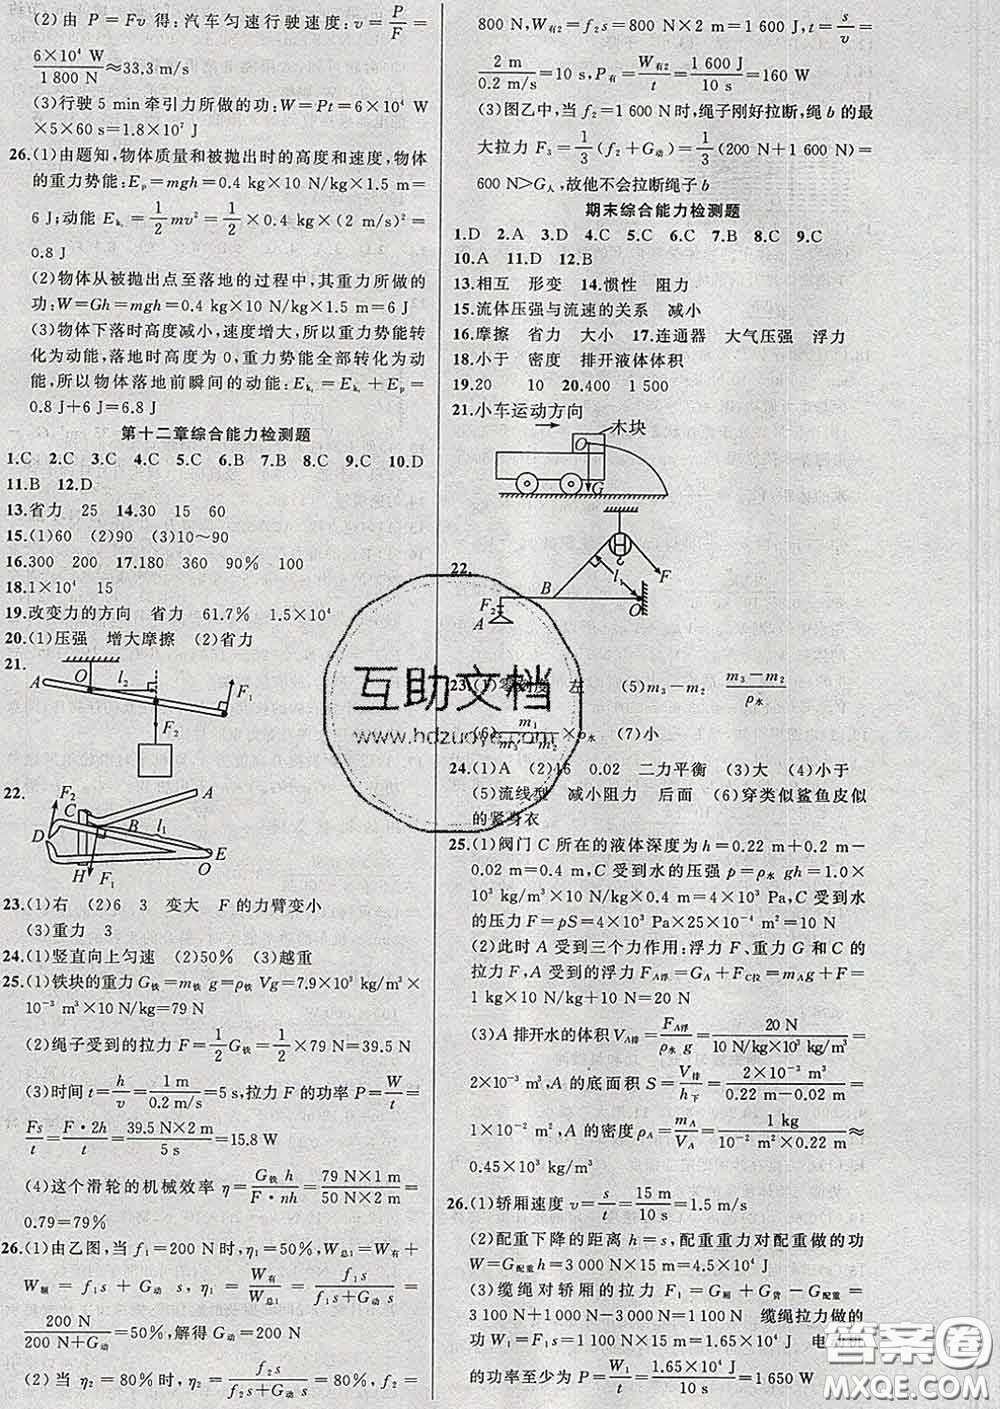 (2)由 P=Fv 得:汽车匀速行驶速度:v=P/F=
6×10⁴ W/1 800 N≈33.3 m/s
(3)行驶 5 min 牵引力所做的功:W=Pt=6×10⁴ W
×5×60 s=1.8×10⁷ J
26.(1)由题知,物体质量和被抛出时的高度和速度,物体
的重力势能:Eₚ=mgh=0.4 kg×10 N/kg×1.5 m=
6 J;动能 Eₖ₁=1/2mv²=1/2×0.4 kg×(2 m/s)²=
0.8 J
(2)物体从被抛出点至落地的过程中,其重力所做的
功:W=Gh=mgh=0.4 kg×10 N/kg×1.5 m=6 J
(3)物体下落时高度减小,速度增大,所以重力势能转
化为动能,落地时高度为 0,重力势能全部转化为动
能,所以物体落地前瞬间的动能:Eₖ₂=Eₖ₁+Eₚ=
0.8 J+6 J=6.8 J
第十二章综合能力检测题
1.C 2.C 3.C 4.C 5.C 6.B 7.B 8.C 9.C 10.D
11.B 12.D
13.省力 25 14.30 15 60
15.(1)60 (2)90 (3)10~90
16.300 200 17.180 360 90% 100
18.1×10⁴ 15
19.改变力的方向 省力 61.7% 1.5×10⁴
20.(1)压强 增大摩擦 (2)省力
21.
A O l₂ F₁ F₂
22.
F₂ C A B l₁ D E O H F₁
23.(1)右 (2)6 3 变大 F 的力臂变小
(3)重力 3
24.(1)竖直向上匀速 (2)50% (3)越重
25.(1)铁块的重力 G铁=m铁 g=ρ铁 Vg=7.9×10³ kg/m³
×10⁻³ m³×10 N/kg=79 N
(2)绳子受到的拉力 F=1/2G铁=1/2×79 N=39.5 N
(3)时间 t=h/v=1 m/0.2 m/s=5 s,拉力 F 的功率 P=W/t=
Fs/t=F·2h/t=39.5 N×2 m/5 s=15.8 W
(4)这个滑轮的机械效率 η=G铁 h/F·nh=79 N×1 m/50 N×2 m=
0.79=79%
26.(1)由乙图,当 f₁=200 N 时,η₁=50%,W总1=W有+
W额=f₁s+G动 s,η₁=W有/W总1=f₁s/f₁s+G动s=
200 N/200 N+G动=50%,解得 G动=200 N
(2)当 η₂=80%时,η₂=f₂s/f₂s+G动 s=80%,f₂=
800 N,W有2=f₂s=800 N×2 m=1 600 J,t=s/v=
2 m/0.2 m/s=10 s,P有=W有2/t=1 600 J/10 s=160 W
(3)图乙中,当 f₂=1 600 N时,绳子刚好拉断,绳 b 的最
大拉力 F₃=1/3(f₂+G动)=1/3(200 N+1 600 N)=
600 N>G人,故他不会拉断绳子 b
期末综合能力检测题
1.D 2.A 3.D 4.C 5.C 6.C 7.B 8.C 9.C
10.A 11.D 12.B
13.相互 形变 14.惯性 阻力
15.流体压强与流速的关系 减小
16.摩擦 省力 大小 17.连通器 大气压强 浮力
18.小于 密度 排开液体体积
19.20 10 20.400 1 500
21.小车运动方向
木块 O G
22.
B F l₁ F₂ A O
23.(1)零刻度 左 (5)m₃-m₂ m₃-m₂/ρ水
(6)m₁/m₃-m₂×ρ水 (7)小
24.(1)A (2)16 0.02 二力平衡 (3)大 (4)小于
(5)流线型 减小阻力 后面 (6)穿类似鲨鱼皮似
的紧身衣
25.(1)阀门 C 所在的液体深度为 h=0.22 m+0.2 m-
0.02 m=0.4 m,C 受到水的压强 p=ρ水 gh=1.0×
10³ kg/m³×10 N/kg×0.4 m=4×10³ Pa,C 受到水
的压力 F=pS=4×10³ Pa×25×10⁻⁴ m²=10 N
(2)此时 A 受到三个力作用:浮力 F、重力 G 和 C 的
拉力 F,A 受到的浮力 FA浮=GA+FC拉=mAg+F=
1 kg×10 N/kg+10 N=20 N
(3)A 排开水的体积 VA排=FA浮/ρ水 g=20 N/10 N/kg×10³ kg/m³=
2×10⁻³ m³,A 的底面积 S=V排/h下=2×10⁻³ m³/0.22 m-0.02 m=
1×10⁻² m²,A 的密度 ρA=mA/VA=1 kg/10⁻² m²×0.22 m≈
0.45×10³ kg/m³
26.(1)轿厢速度 v=s/t=15 m/10 s=1.5 m/s
(2)配重下降的距离 h=s,配重重力对配重做的功
W=G配重h=3 000 N×15 m=4.5×10⁴ J
(3)缆绳对轿厢的拉力 F₁=G厢+G货-G配重=
3 100 N+1 000 N-3 000 N=1 100 N 缆绳拉力做的
功 W₁=F₁s=1 100 N×15 m=1.65×10⁴ J 电
的功率至少为 P=W₁/t=1.65×10⁴ J/10 s=1 650 W
互助文档
www.hdzuoye.com
答案圈
MXQE.COM